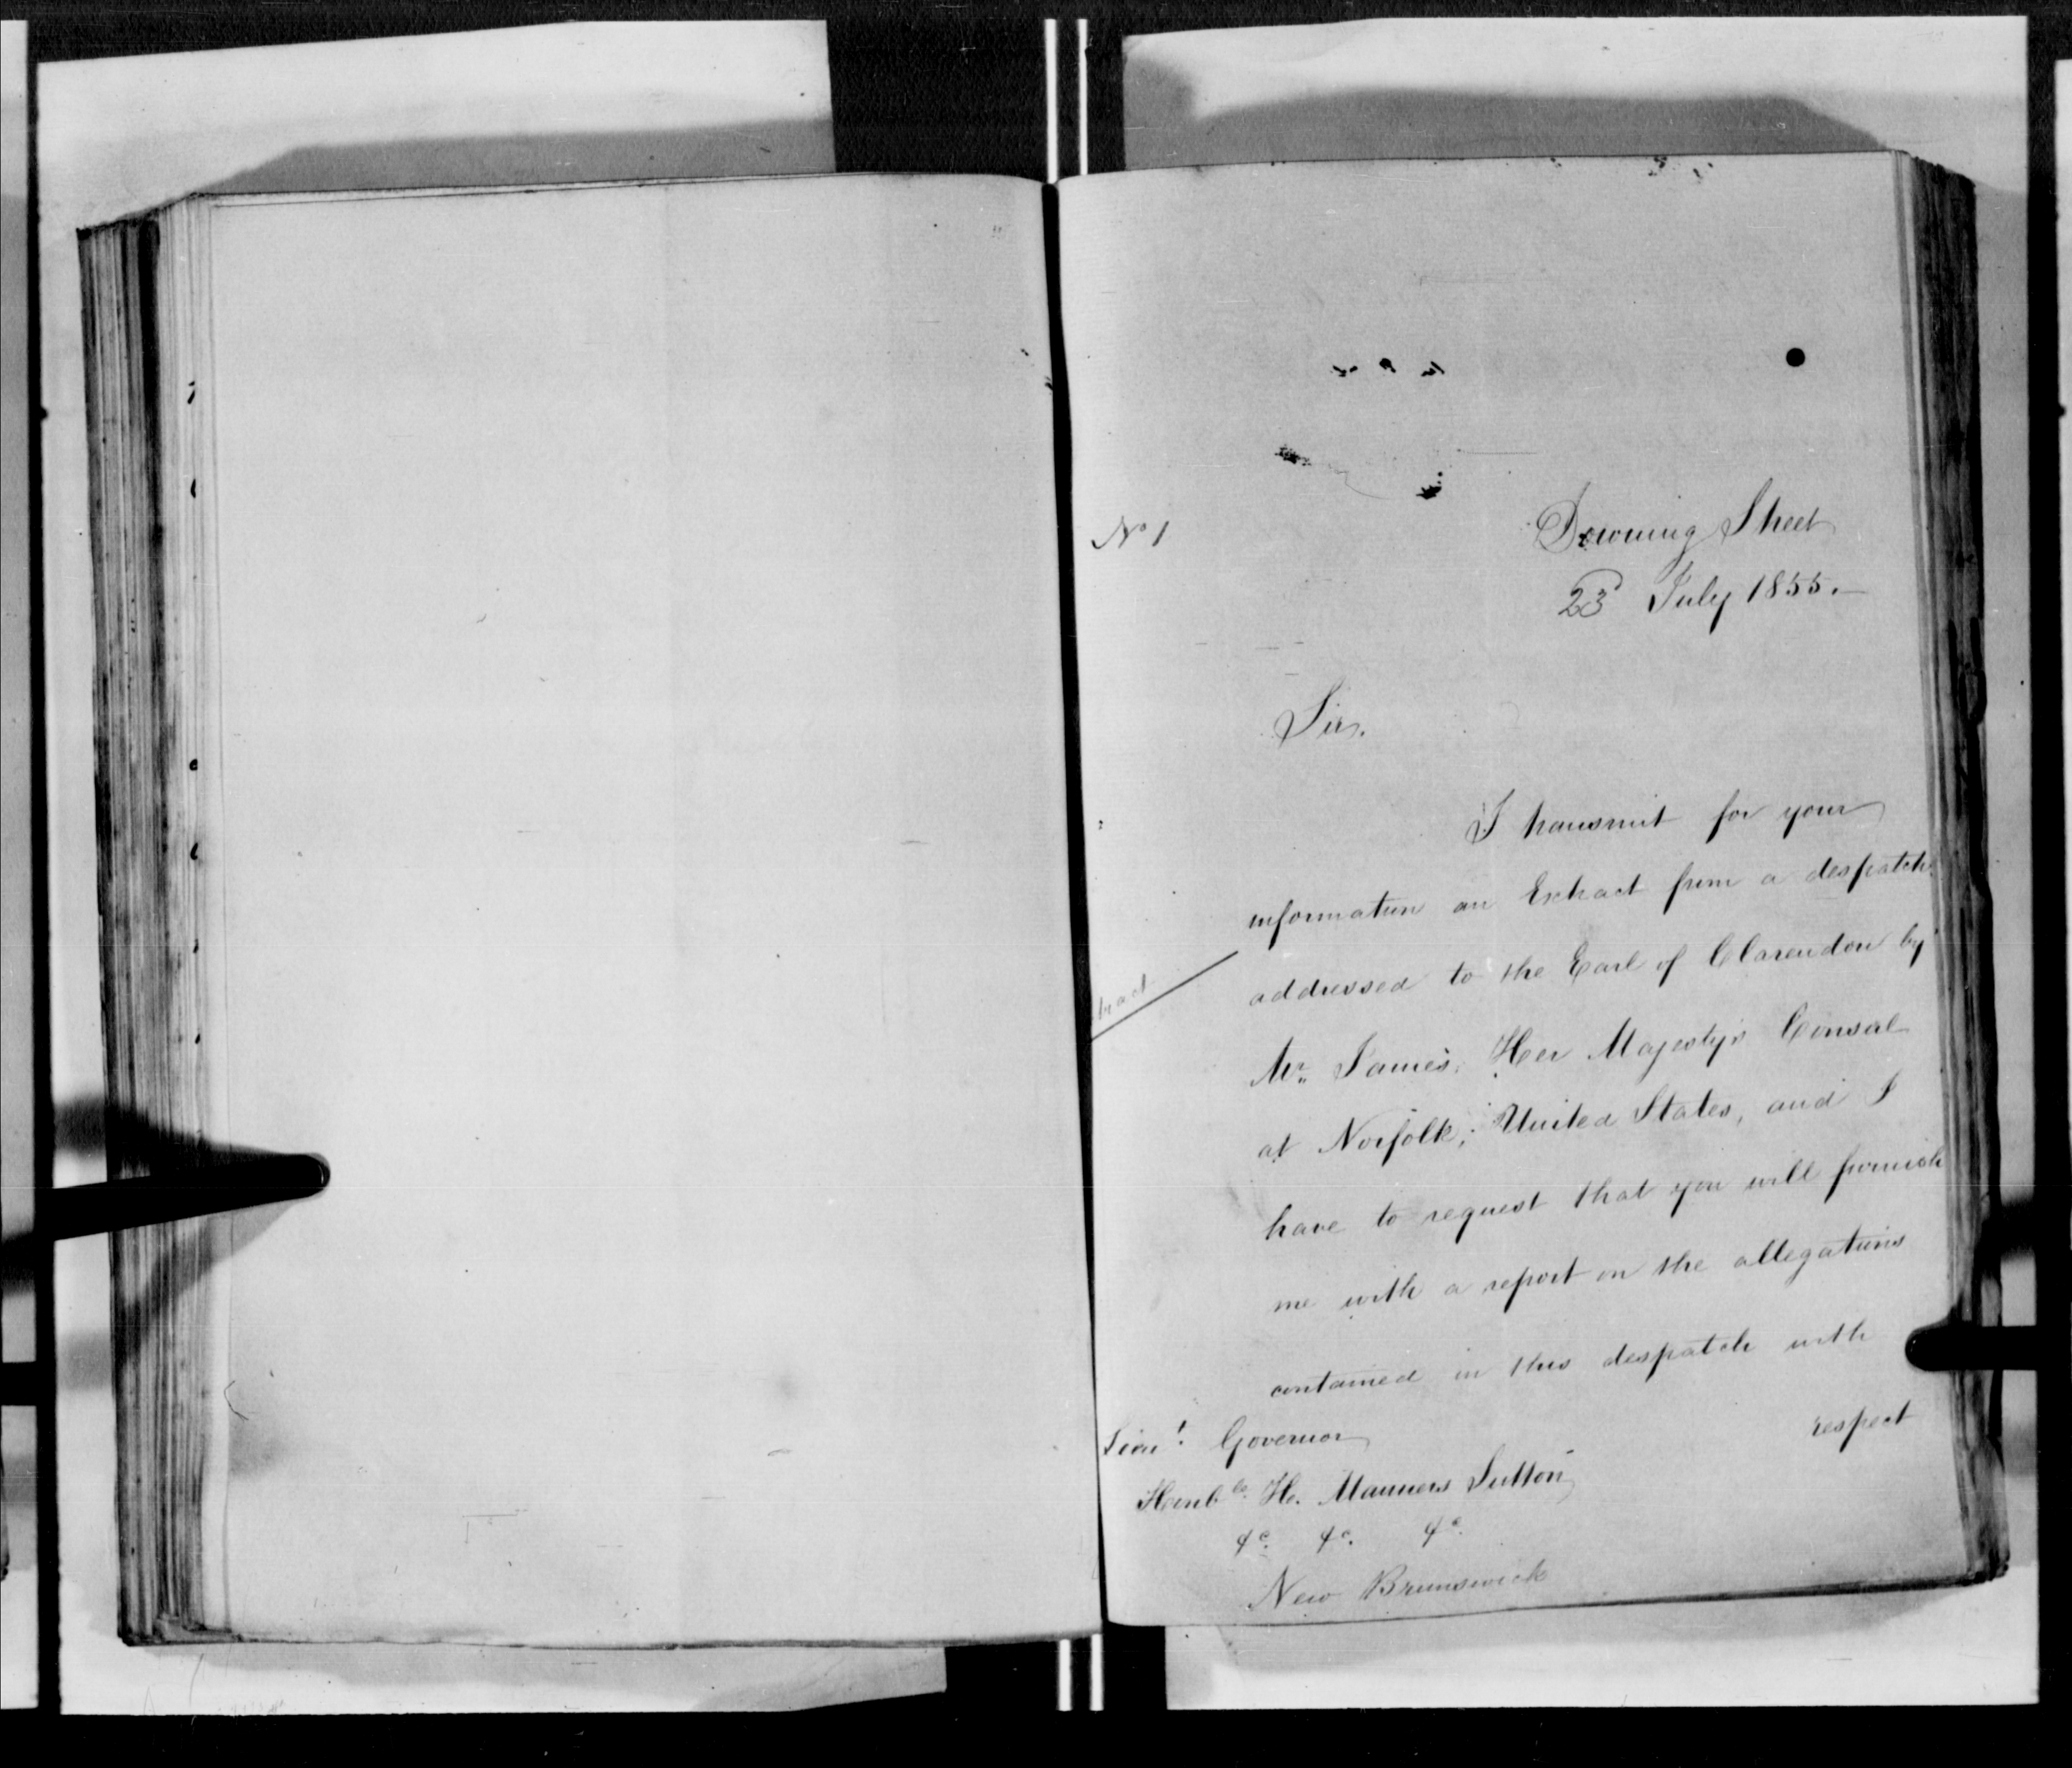 No 1
Downing Street
23 July 1855.
Sir,
I transmit for your
information an Extract from a despatch
addressed to the Earl of Clarendon by
tract
Mr. James, Her Majesty's Consul
at Norfolk, United States, and I
have to request that you will furnish
me with a report on the allegations
contained in this despatch with
respect
Lieut. Governor
Honble. H. Manners Sutton
&c. &c. &c.
New Brunswick